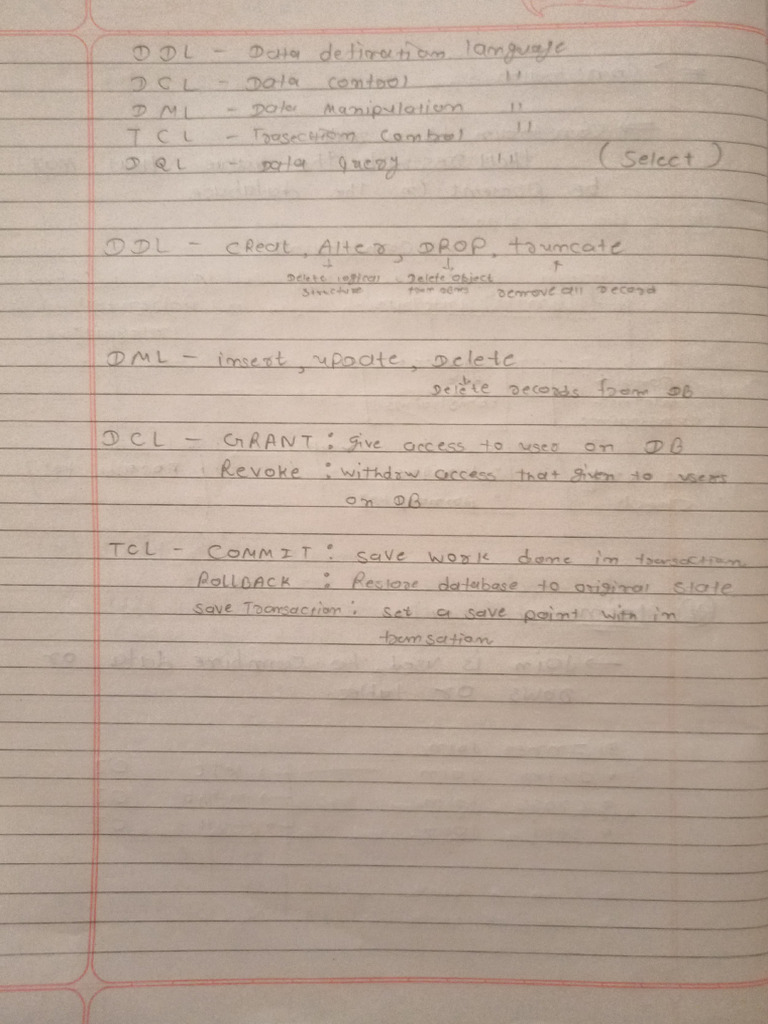 DDL - Data defination language
DCL - Data control "
DML - Data Manipulation "
TCL - Trasection control "
DQL - Data Query " (Select)
DDL - CReat, Alter, DROP, truncate
Delete logical Delete Object
structure remove all record
DML - insert, update, Delete
Delete records from DB
DCL - GRANT : give access to user on DB
Revoke : withdrw access that given to users
on DB
TCL - COMMIT : save work done in transaction
ROLLBACK : Restore database to original state
save Transaction : set a save point with in
transation